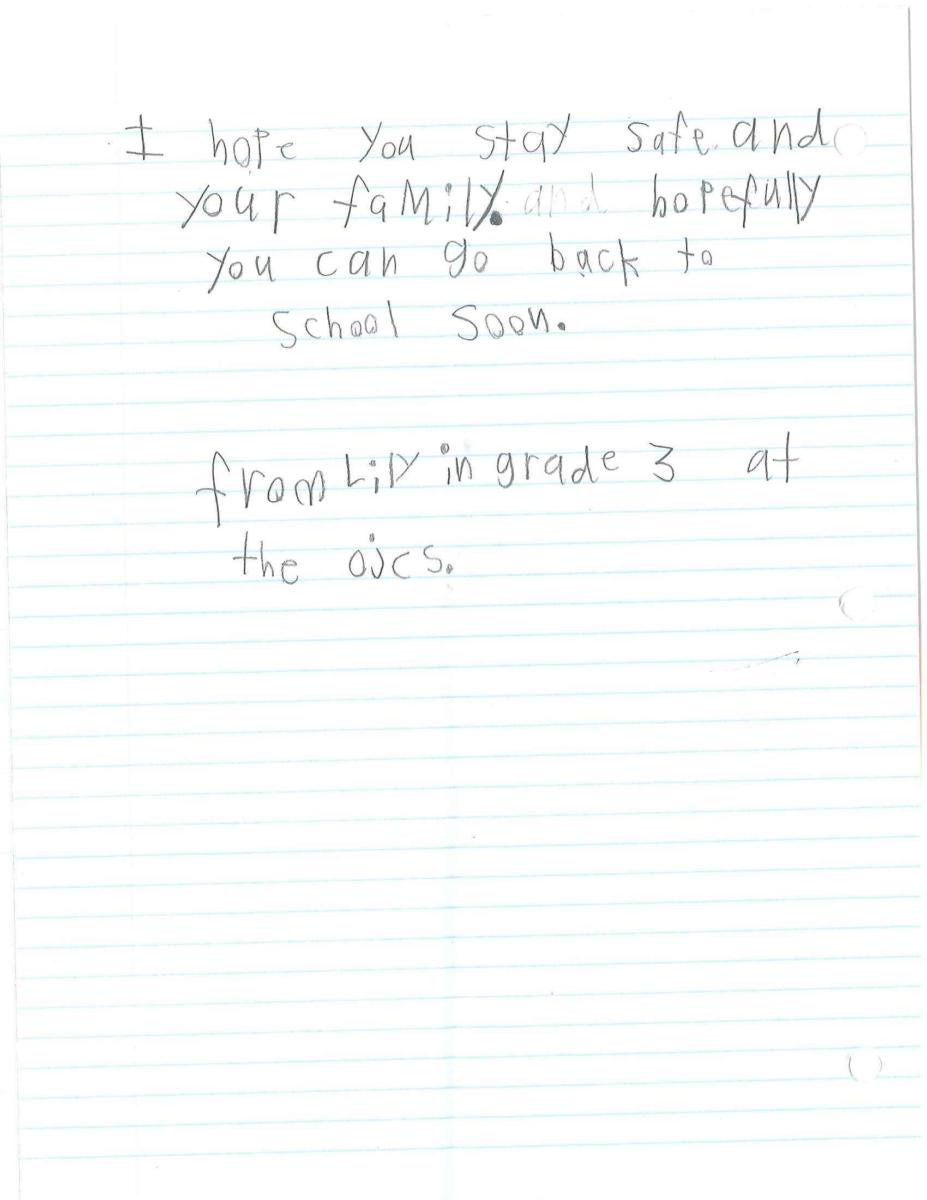 I hope you stay safe. and
your family. and hopefully
you can go back to
school soon.
from Lily in grade 3 at
the ojcs.